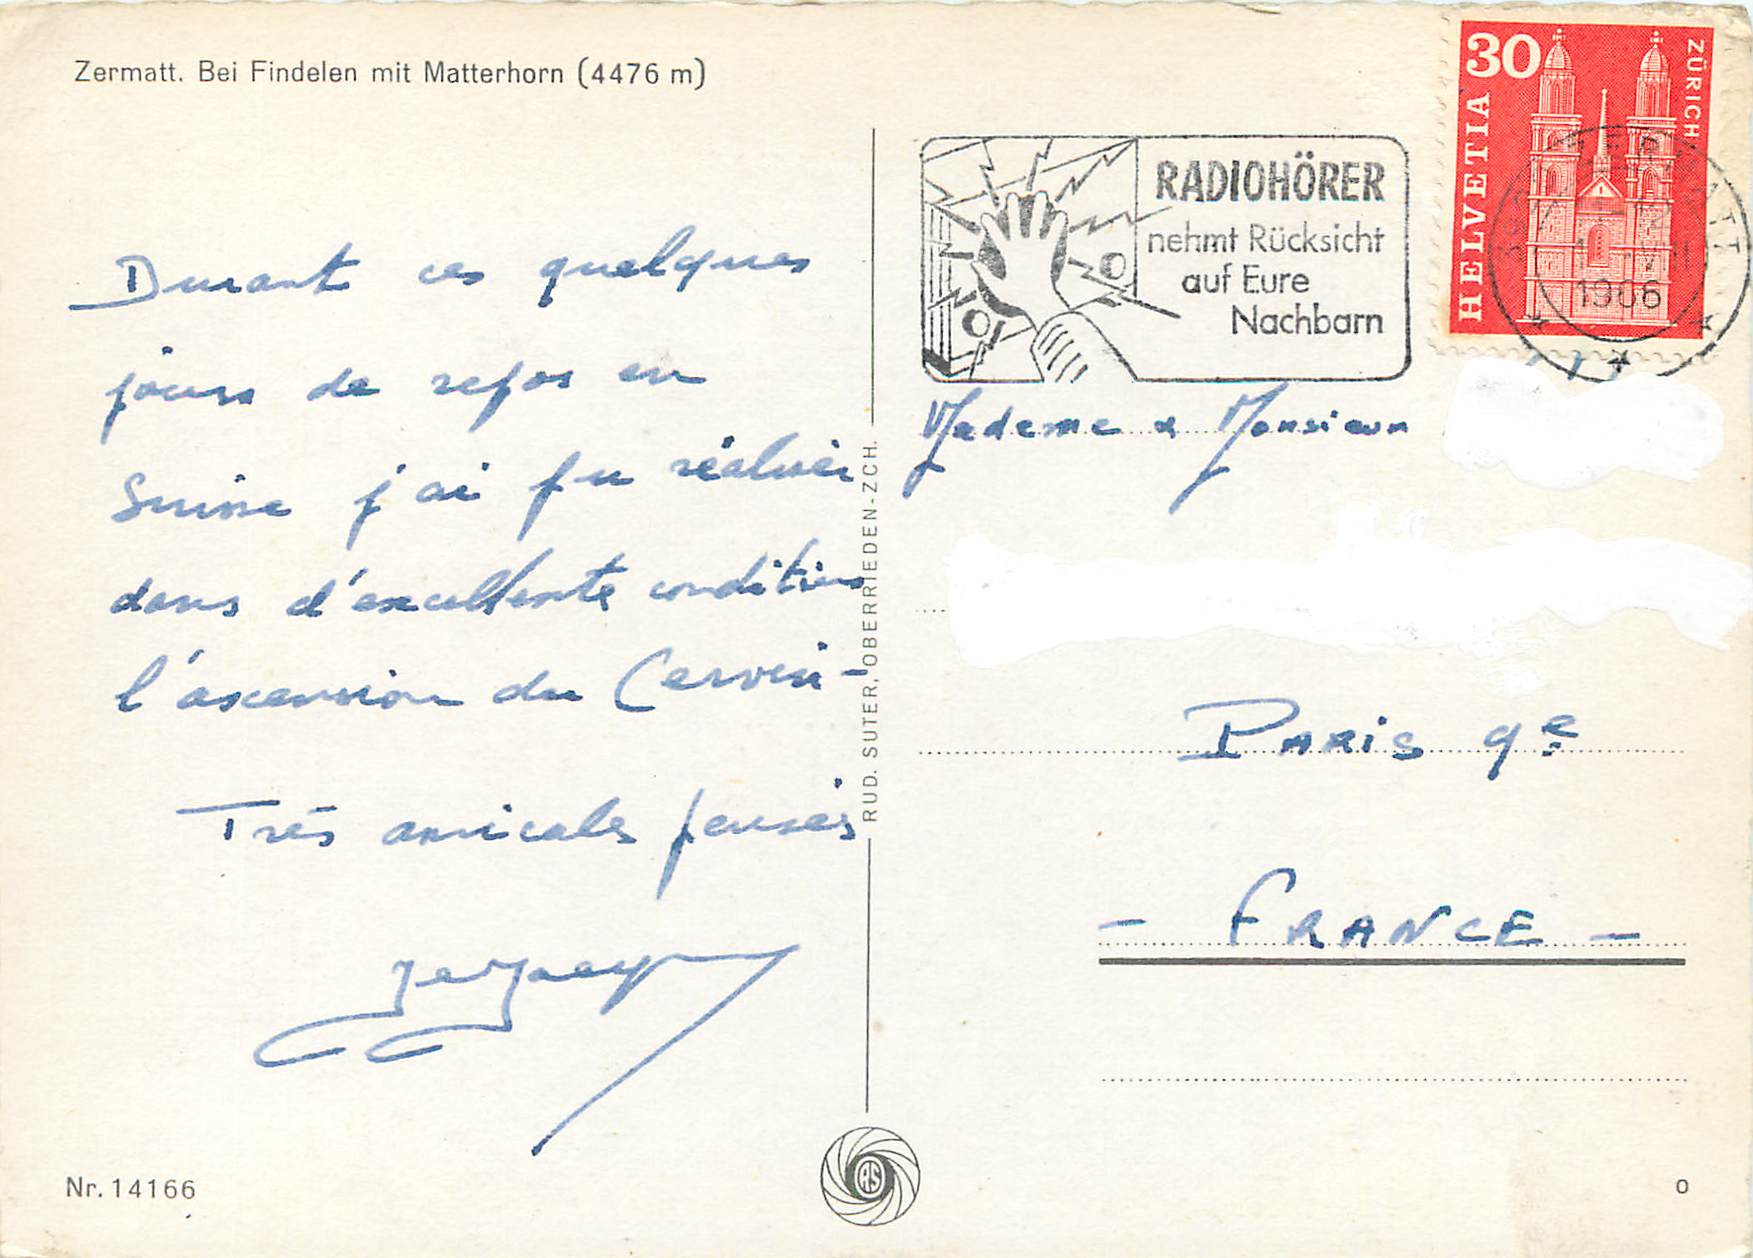 Zermatt. Bei Findelen mit Matterhorn (4476 m)
Durant ces quelques
jours de repos en
Suisse j'ai pu réaliser
dans d'excellente condition
l'ascension du Cervin -
Très amicales pensées
Nr. 14166
RUD. SUTER, OBERRIEDEN-ZCH.
RS
RADIOHÖRER
nehmt Rücksicht
auf Eure
Nachbarn
30
HELVETIA
ZÜRICH
ZERMATT
1966
Madame & Monsieur
PARIS 9e
- FRANCE -
O